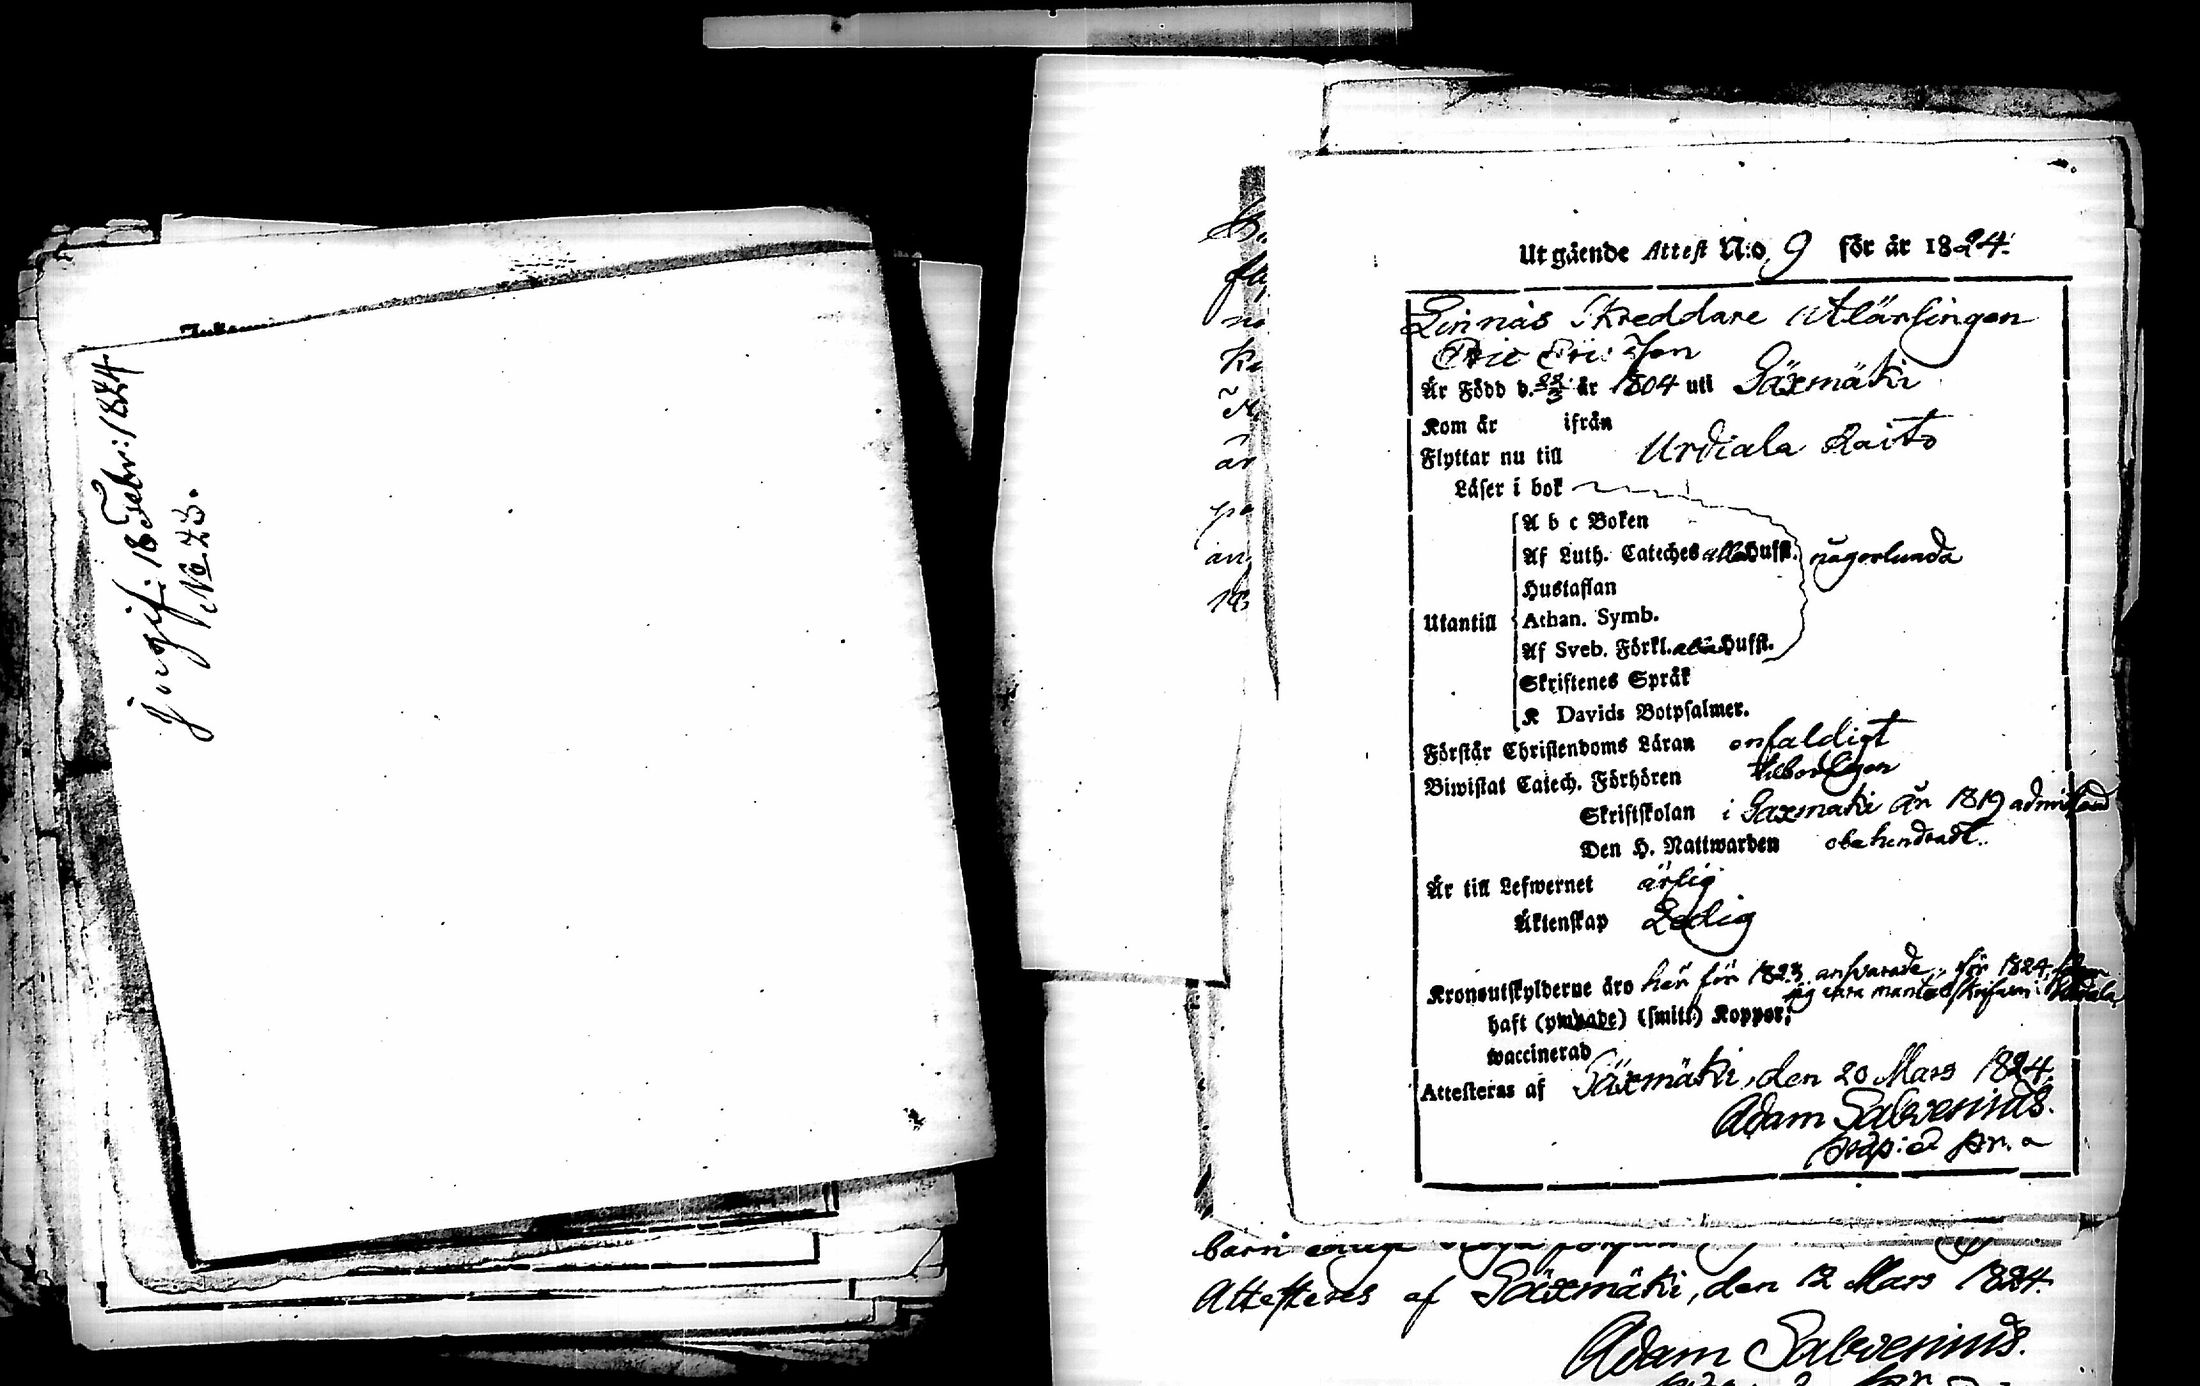 Ingif: 18 Febr: 1824
No 23.
Utgående Attest N:o 9 för år 1824.
Linnas Skreddare Utlärlingen
Eric Ericsson
Är Född d. 22/3 år 1804 uti Säxmäki
Kom år ifrån
Flyttar nu till Urdiala Raito
Läser i bok
A b c Boken
Af Luth. Cateches alla Hufst. någorlunda
Hustaflan
Utantill Athan. Symb.
Af Sveb. Förkl. alla Hufst.
Skriftenes Språk
K Davids Botpsalmer.
Förstår Christendoms Läran enfaldigt
Biwistat Catech. Förhören
Skriftskolan i Saxmäki år 1819
Den H. Nattwarden obehindradt.
Är till Lefwernet ärlig
Äktenskap Ledig
Kronoutskylderne äro här för 1823 answarade, för 1824
haft Koppor,
waccinerad
Attesteras af Säxmäki, den 20 Mars 1824.
Adam Salovenius.
barn
Attesteras af Säxmäki, den 12 Mars 1824.
Adam Salovenius.